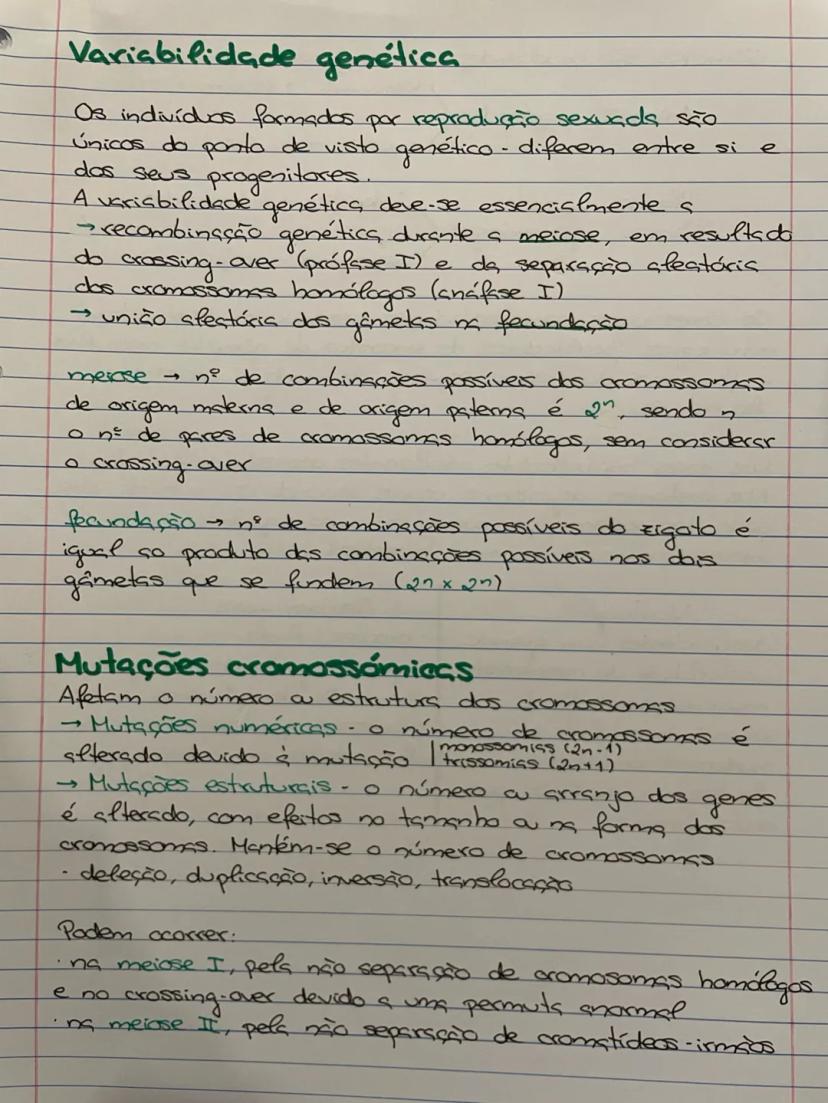 Variabilidade genética
Os indivíduos formados por reprodução sexuada são
únicos do ponto de visto genético - diferem entre si e
dos seus progenitores.
A variabilidade genética deve-se essencialmente a
→ recombinação genética durante a meiose, em resultado
do crossing-over (prófase I) e da separação aleatória
dos cromossomas homólogos (anáfase I)
→ união aleatória dos gâmetas na fecundação
meiose → nº de combinações possíveis dos cromossomas
de origem materna e de origem paterna é 2ⁿ, sendo n
o nº de pares de cromossomas homólogos, sem considerar
o crossing-over
fecundação → nº de combinações possíveis do zigoto é
igual ao produto das combinações possíveis nos dois
gâmetas que se fundem (2n x 2n)
Mutações cromossómicas
Afetam o número ou estrutura dos cromossomas
→ Mutações numéricas - o número de cromossomas é
alterado devido à mutação | monossomias (2n-1)
trissomias (2n+1)
→ Mutações estruturais - o número ou arranjo dos genes
é alterado, com efeitos no tamanho ou na forma dos
cromossomas. Mantém-se o número de cromossomas
· deleção, duplicação, inversão, translocação
Podem ocorrer:
· na meiose I, pela não separação de cromosomas homólogos
e no crossing-over devido a uma permuta anormal
· na meiose II, pela não separação de cromatídeos-irmãos